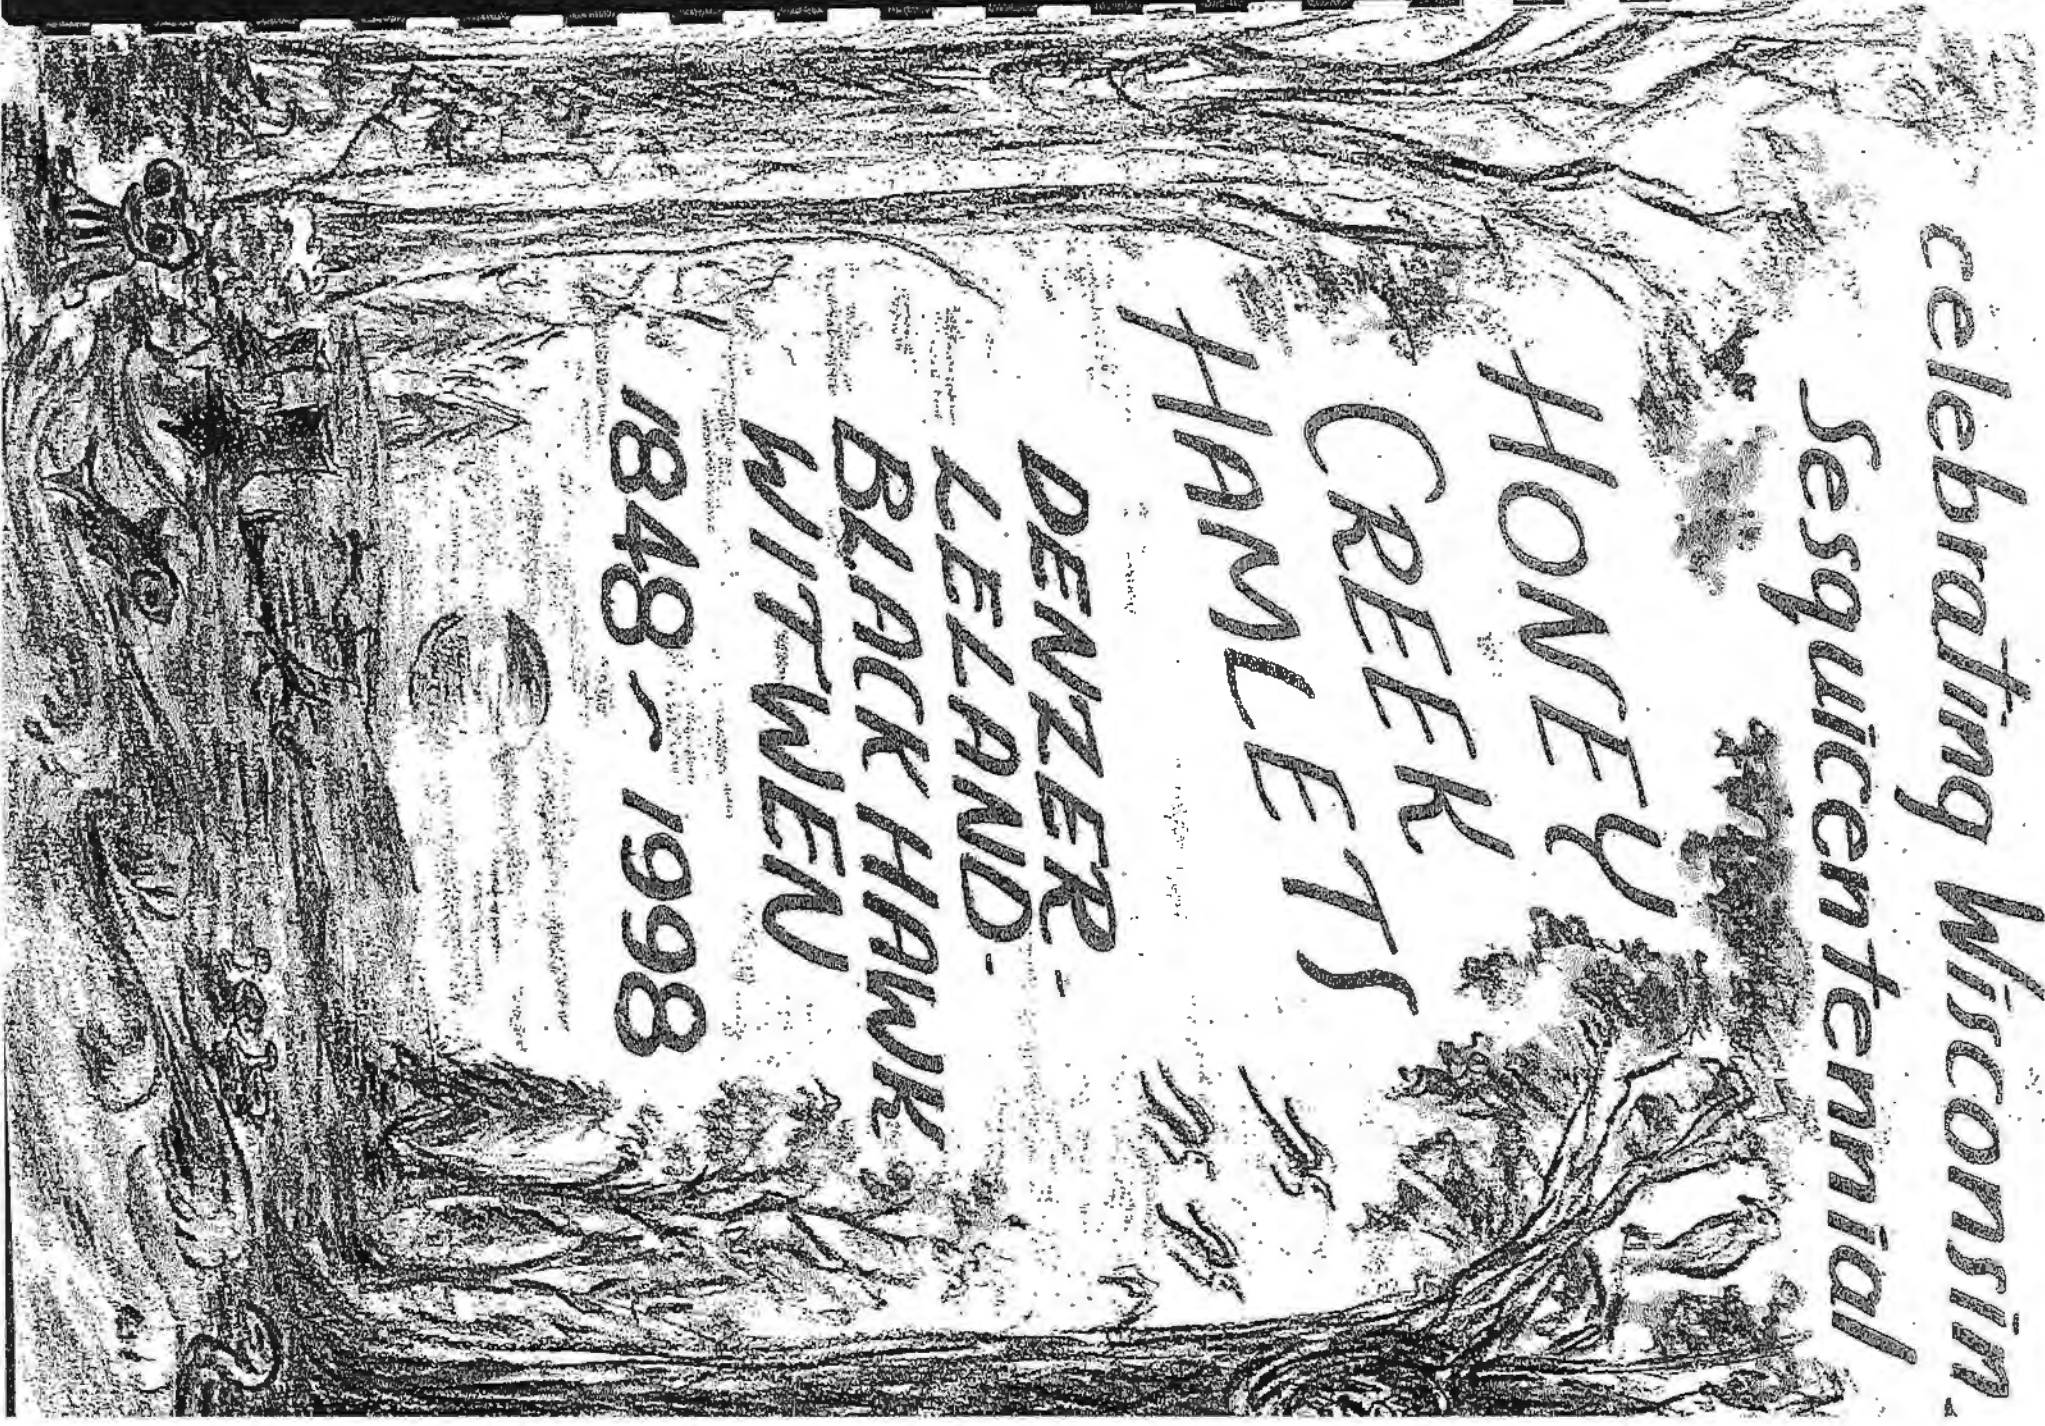 celebrating Wisconsin
Sesquicentennial
HONEY
CREEK
HAMLETS
DENZER-
LELAND-
BLACK HAWK
WITWEN
1848 ~ 1998